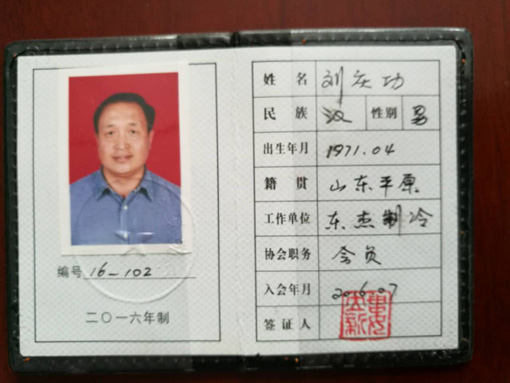 编号 16-102
二〇一六年制
姓名 刘庆功
民族 汉 性别 男
出生年月 1971.04
籍贯 山东平原
工作单位 东杰制冷
协会职务 会员
入会年月 2016.07
签证人